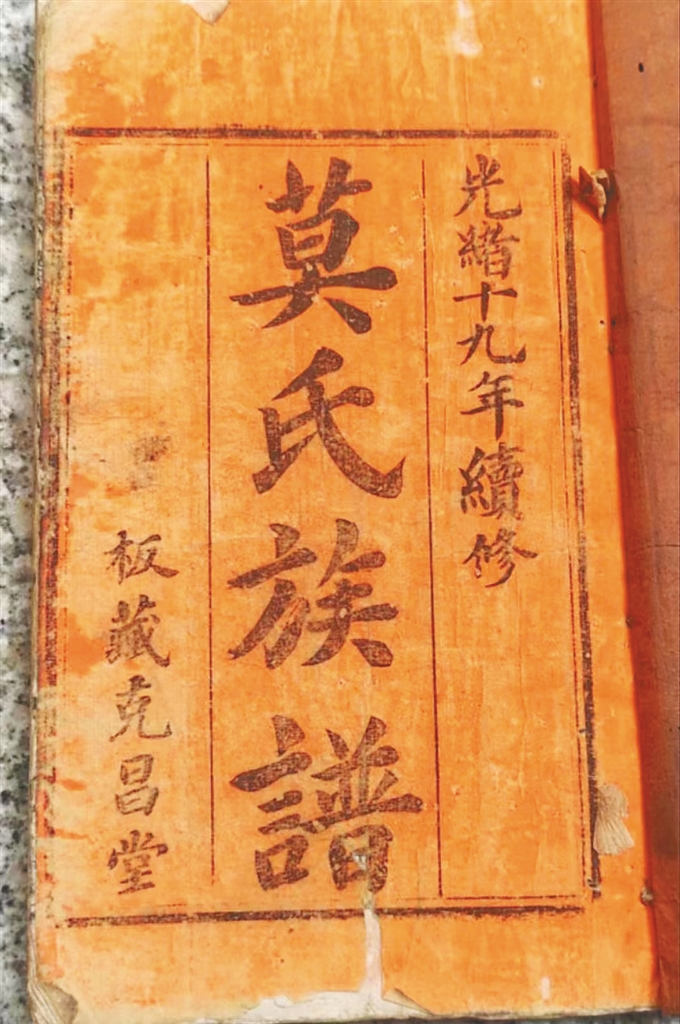 光緒十九年續修
莫氏族譜
板藏克昌堂